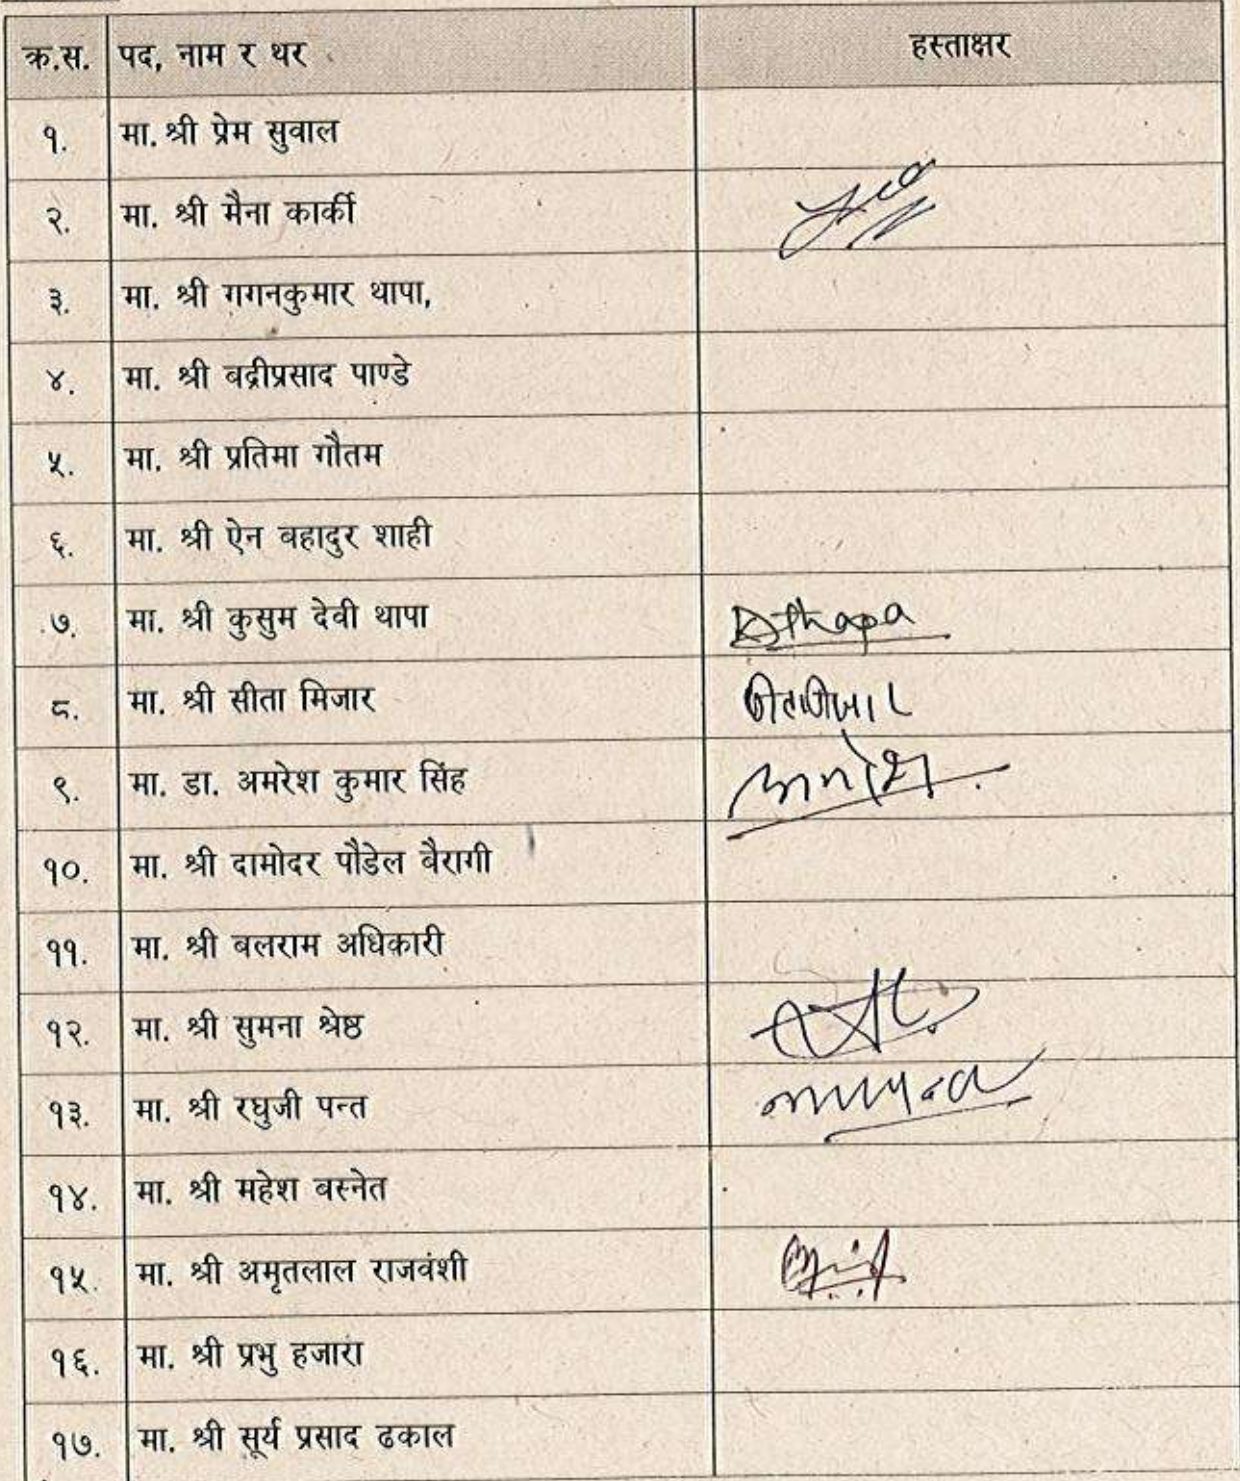 क्र.स. पद, नाम र थर हस्ताक्षर
१. मा. श्री प्रेम सुवाल
२. मा. श्री मैना कार्की
३. मा. श्री गगनकुमार थापा,
४. मा. श्री बद्रीप्रसाद पाण्डे
५. मा. श्री प्रतिमा गौतम
६. मा. श्री ऐन बहादुर शाही
७. मा. श्री कुसुम देवी थापा Kthapa
८. मा. श्री सीता मिजार
९. मा. डा. अमरेश कुमार सिंह
१०. मा. श्री दामोदर पौडेल बैरागी
११. मा. श्री बलराम अधिकारी
१२. मा. श्री सुमना श्रेष्ठ
१३. मा. श्री रघुजी पन्त
१४. मा. श्री महेश बस्नेत
१५. मा. श्री अमृतलाल राजवंशी
१६. मा. श्री प्रभु हजारा
१७. मा. श्री सूर्य प्रसाद ढकाल